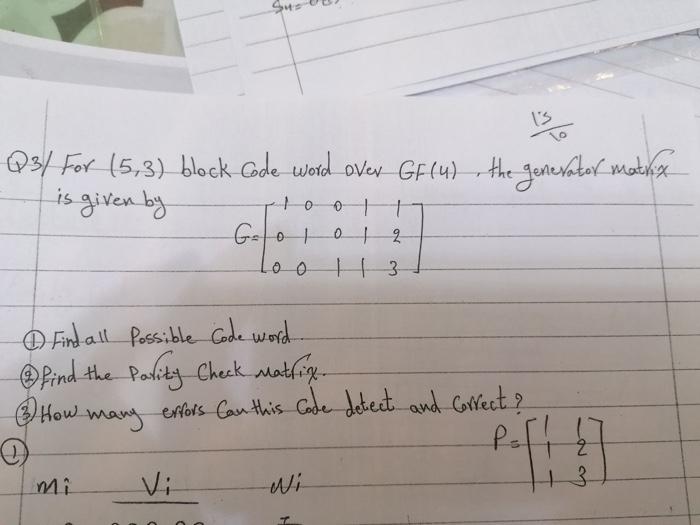 Q3/ For (5,3) block Code word over GF(4), the generator matrix
is given by
G= [ 1 0 0 1 1
0 1 0 1 2
0 0 1 1 3 ]
① Find all Possible Code word.
② find the Parity Check Matrix.
③ How many errors Can this Code detect and Correct?
P= [ 1 1
1 2
1 3 ]
①
mi Vi Wi